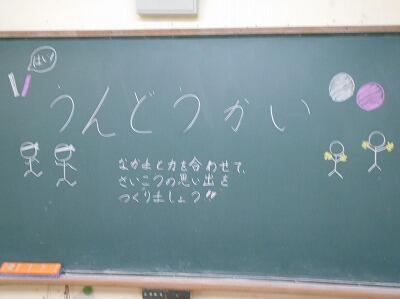 はい!
うんどうかい
なかまと力を合わせて、
さいこうの思い出を
つくりましょう!!